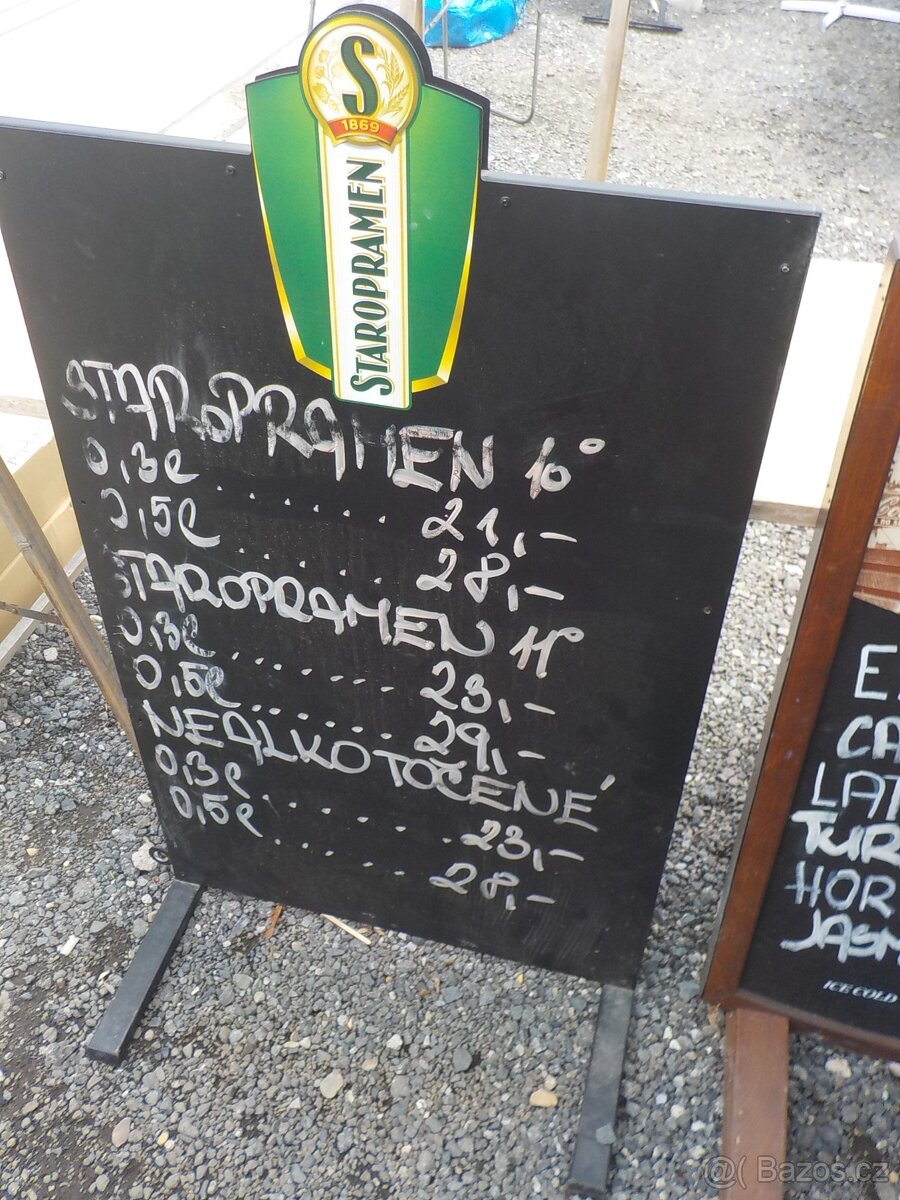 S
1869
STAROPRAMEN
STAROPRAMEN 10°
0,3l ........ 21,-
0,5l ........ 28,-
STAROPRAMEN 11°
0,3l ........ 23,-
0,5l ........ 29,-
NEALKO TOČENÉ
0,3l ........ 23,-
0,5l ........ 28,-
E
CA
LAT
TUR
HOR
JASM
ICE COLD
@( Bazos.cz